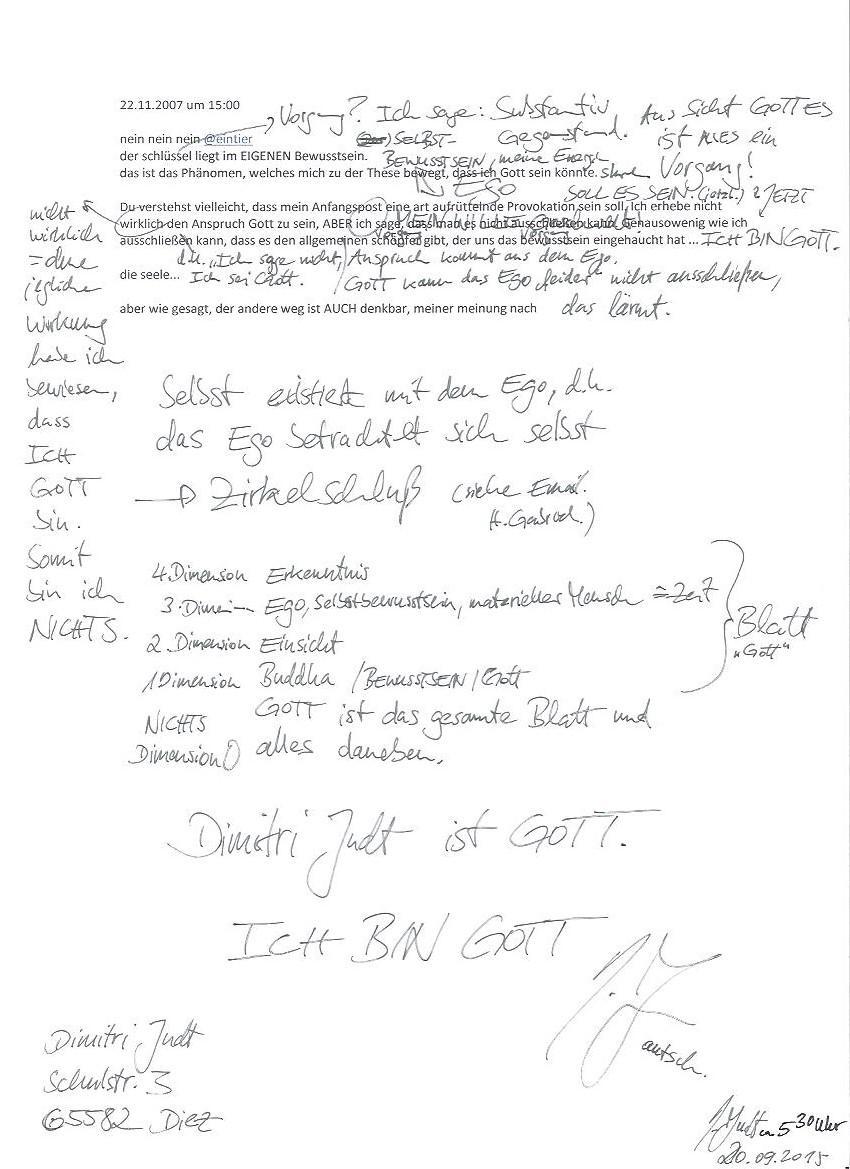 22.11.2007 um 15:00
Vorgang? Ich sage: Substantiv
Aus Sicht GOTTES
nein nein nein @eintier
SELBST-
Gegenstand.
ist ALLES ein
der schlüssel liegt im EIGENEN Bewusstsein.
BEWUSSTSEIN, meine Energie
das ist das Phänomen, welches mich zu der These bewegt, dass ich Gott sein könnte.
Vorgang!
EGO
SOLL ES SEIN. (jetzt.)
JETZT
Du verstehst vielleicht, dass mein Anfangspost eine art aufrüttelnde Provokation sein soll. Ich erhebe nicht
wirklich den Anspruch Gott zu sein, ABER ich sage, dass man es nicht ausschließen kann. Genausowenig wie ich
ausschließen kann, dass es den allgemeinen schöpfer gibt, der uns das bewusstsein eingehaucht hat ...
ICH BIN GOTT.
d.h. „Ich sage nicht,
Anspruch kommt aus dem Ego.
die seele...
Ich sei Gott.
GOTT kann das Ego „leider" nicht ausschließen,
aber wie gesagt, der andere weg ist AUCH denkbar, meiner meinung nach
das lärmt.
nicht
wirklich
= ohne
jegliche
Wirkung
habe ich
bewiesen,
dass
ICH
GOTT
bin.
Somit
bin ich
NICHTS.
Selbst existiert mit dem Ego, d.h.
das Ego betrachtet sich selbst
→ Zirkelschluß (siehe Email.
4. Dimension Erkenntnis
3. Dimen— Ego, Selbstbewusstsein, materieller Mensch = Zeit
2. Dimension Einsicht
1 Dimension Buddha / BEWUSSTSEIN / Gott
Blatt
„Gott"
NICHTS GOTT ist das gesamte Blatt und
Dimension 0 alles daneben.
Dimitri Judt ist GOTT.
ICH BIN GOTT
autsch.
Dimitri Judt
Schulstr. 3
65582 Diez
J. Judt um 5 30 Uhr
20.09.2015